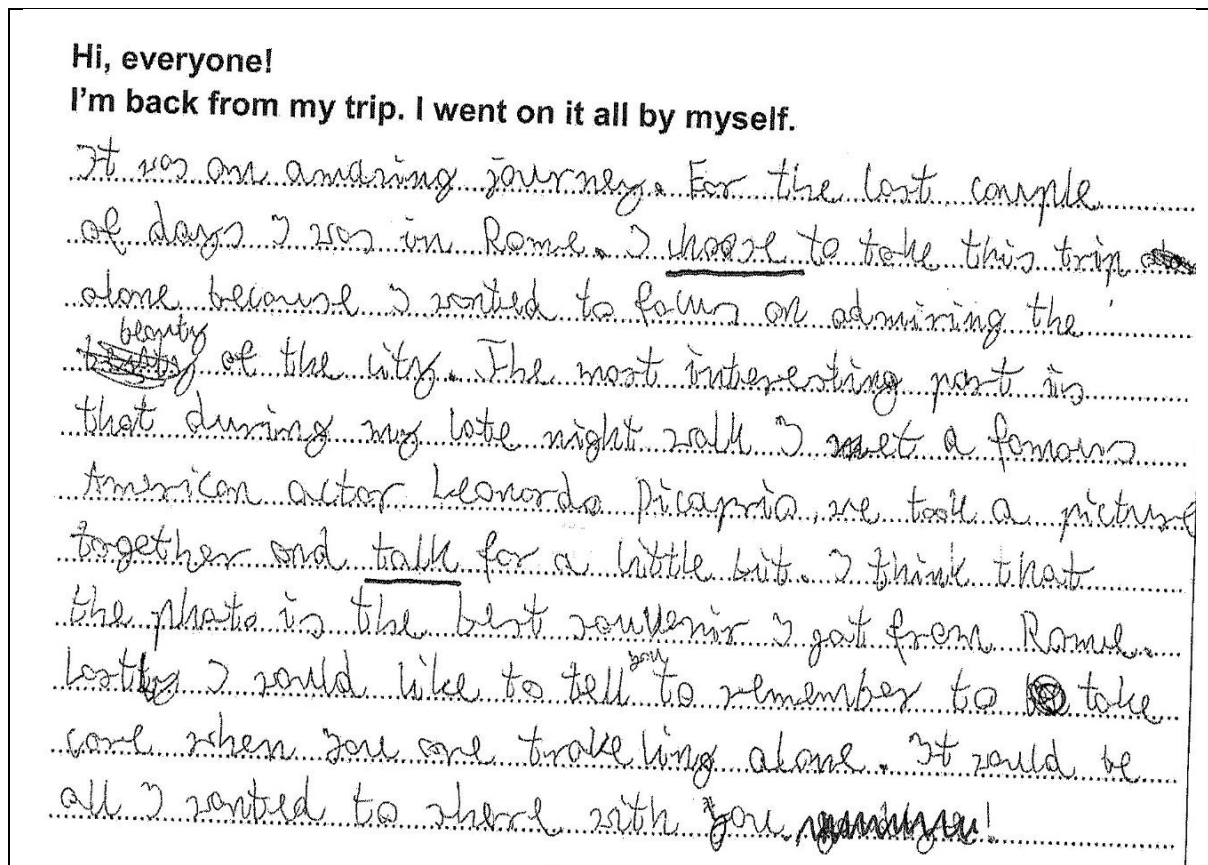 Hi, everyone!
I'm back from my trip. I went on it all by myself.
It was an amazing journey. For the last couple
of days I was in Rome. I choose to take this trip
alone because I wanted to focus on admiring the
beauty of the city. The most interesting part is
that during my late night walk I met a famous
American actor Leonardo Dicaprio, we took a picture
together and talk for a little bit. I think that
the photo is the best souvenir I got from Rome.
Lastly I would like to tell you to remember to take
care when you are traveling alone. It would be
all I wanted to share with you!